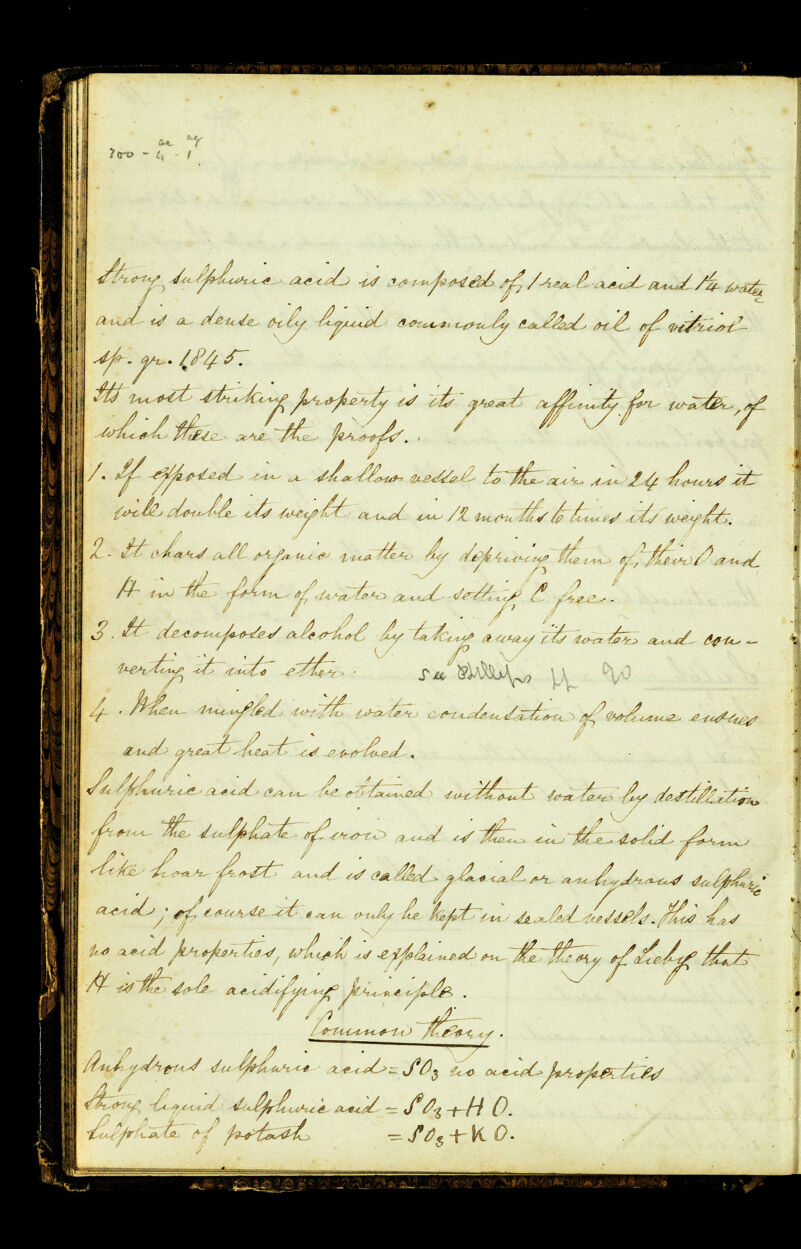 300 - 4 - 1
Strong sulphuric acid is composed of 1 real acid and 1¼ water
and is a dense oily liquid commonly called oil of vitriol
sp. gr. 1.845.
Its most striking property is its great affinity for water, of
which these are the proofs.
1. If exposed in a shallow vessel to the air in 24 hours it
will double its weight and in 12 months 6 times its weight.
2. It chars all organic matter by depriving them of their O and
H in the form of water and setting C free.
3. It decomposes alcohol by taking away its water and con-
verting it into ether. See Phillips 90
4. When mingled with water condensation of volume ensues
and great heat is evolved.
Sulphuric acid can be obtained without water by destillation
from the sulphate of iron and is then in the solid form
like hoar frost and is called glacial or anhydrous sulphuric
acid; of course it can only be kept in sealed vessels. This has
no acid properties, which is explained on the theory of Liebig that
H is the sole acidifying principle.
Common theory.
Anhydrous sulphuric acid = SO₃ no acid properties
Strong liquid sulphuric acid = SO₃ + HO.
Sulphate of potash = SO₃ + KO.